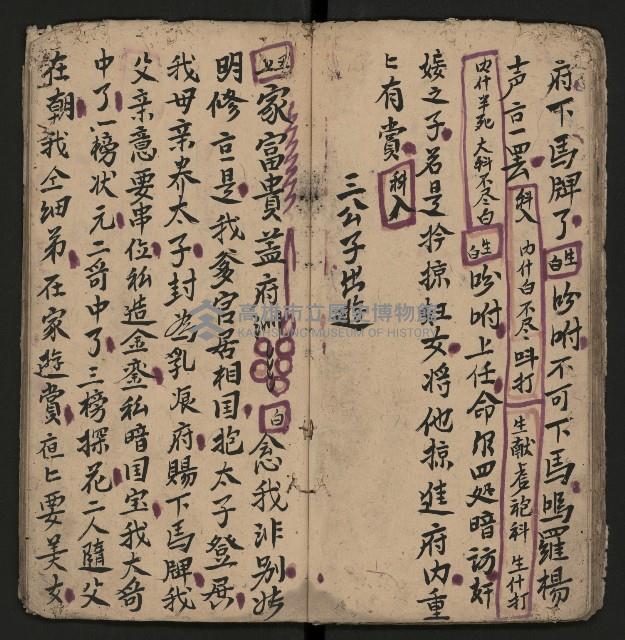 府下馬牌了 生白 吩咐不可下馬鳴羅楊
声言一罢 科入 内什白不尽叫打 生献虗袍科 生什打
内什羊死大科不尽白 生白 吩咐上任命尔四处暗訪奸
婑之子若是扲掠女將他掠進府内重
匕有賞 科入
三公子出
家富貴盖府 白 念我非别姓
明修言是我爹官居相国抱太子登居
我母亲养太子封为乳痕府賜下馬牌我
父亲意要串位私造金銮私暗国宝我大奇
中了一榜状元二奇中了三榜探花二人隨父
在朝我仝细弟在家遊賞夜匕要美女
高雄市立歷史博物館
KAOHSIUNG MUSEUM OF HISTORY